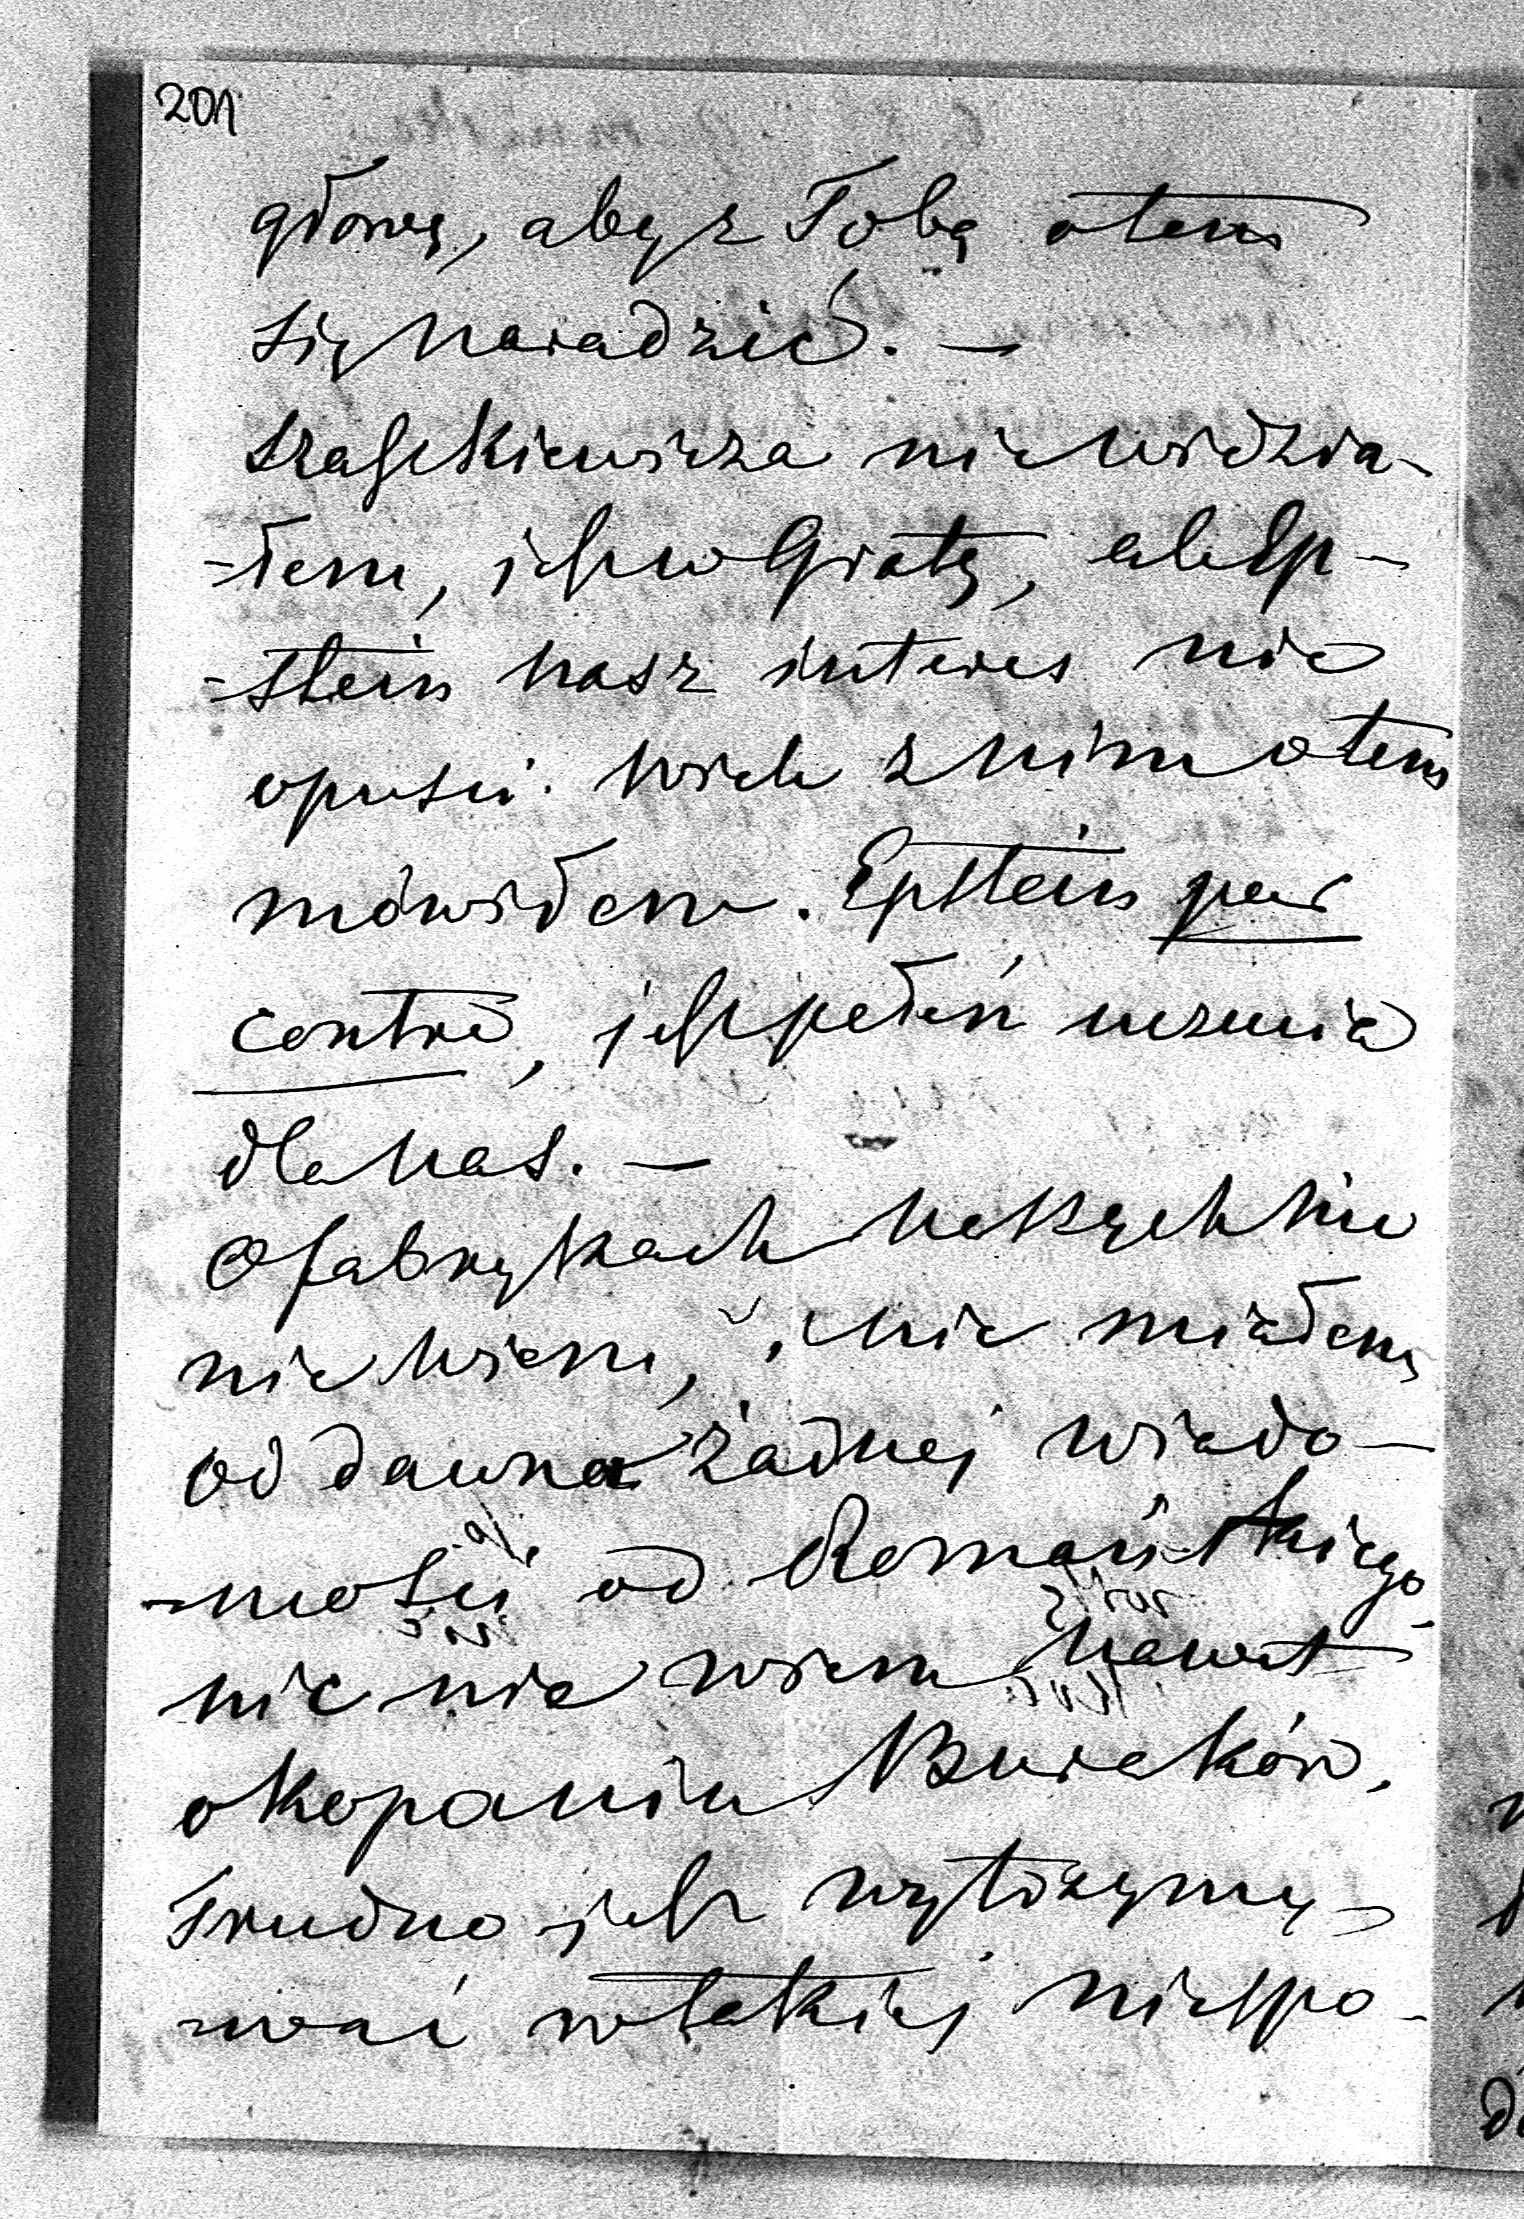 201
głowę, aby z Tobą o tem
się naradzić. —
nie widzia-
-łem, jest w ale Ep-
-stein nasz interes nie
opuści. Wiele z nim o tem
mówiłem. Epstein par
contre, jest pełeń uczucia
dla nas. —
O fabrykach naszych nic
nie wiem, i nie miałem
od dawna żadnej wiado-
-mości od Romańskiego,
nic nie wiem nawet
o kopaniu Buraków.
Trudno jest wytrzymy-
-wać w takiej niespo-